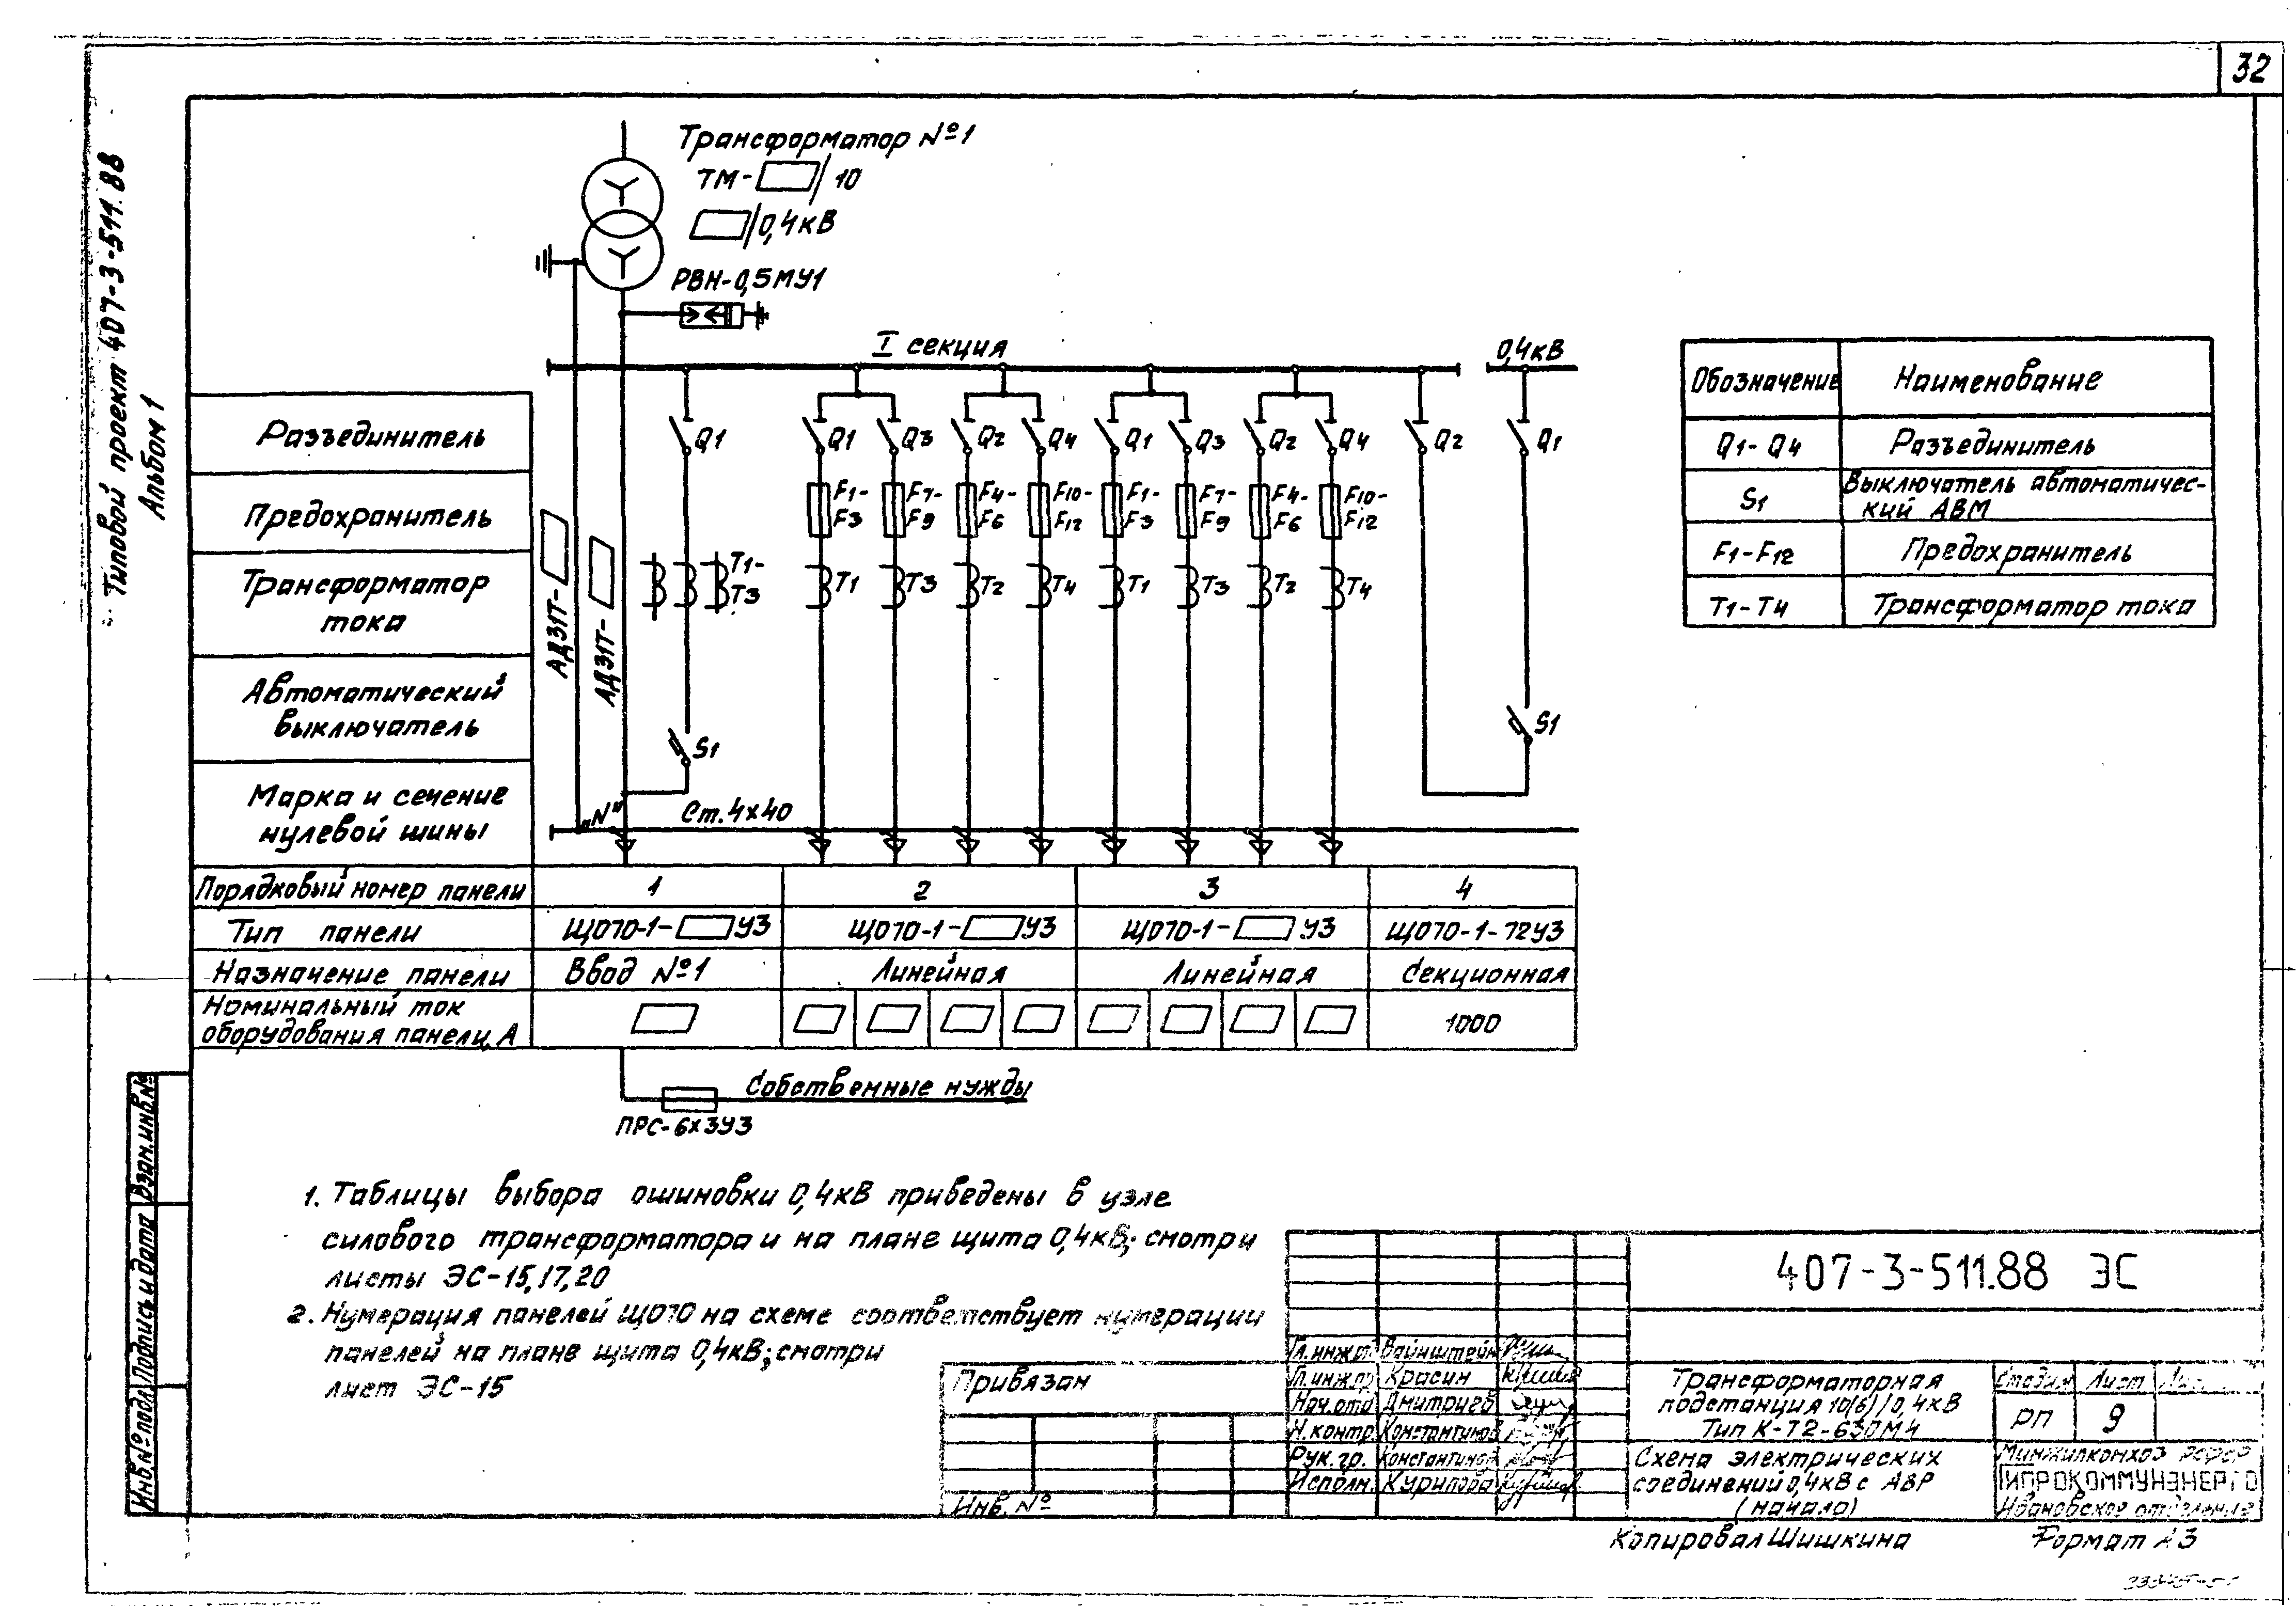 32
Типовой проект 407-3-511.88
Альбом 1
Трансформатор №1
ТМ- /10
/0,4кВ
РВН-0,5МУ1
I секция
0,4кВ
Разъединитель
Предохранитель
Трансформатор
тока
Автоматический
выключатель
Марка и сечение
нулевой шины
АД31Т-
АД31Т-
Q1
Q1
Q3
Q2
Q4
Q1
Q3
Q2
Q4
Q2
Q1
F1-
F3
F7-
F9
F4-
F6
F10-
F12
F1-
F3
F7-
F9
F4-
F6
F10-
F12
Т1-
Т3
Т1
Т3
Т2
Т4
Т1
Т3
Т2
Т4
S1
S1
„N"
Ст.4х40
Обозначение Наименование
Q1-Q4 Разъединитель
S1 Выключатель автоматичес-
кий АВМ
F1-F12 Предохранитель
Т1-Т4 Трансформатор тока
Порядковый номер панели 1 2 3 4
Тип панели ЩО70-1- У3 ЩО70-1- У3 ЩО70-1- У3 ЩО70-1-72У3
Назначение панели Ввод №1 Линейная Линейная Секционная
Номинальный ток
оборудования панели, А 1000
Собственные нужды
ПРС-6х3У3
1. Таблицы выбора ошиновки 0,4кВ приведены в узле
силового трансформатора и на плане щита 0,4кВ; смотри
листы ЭС-15,17,20
2. Нумерация панелей ЩО70 на схеме соответствует нумерации
панелей на плане щита 0,4кВ; смотри
лист ЭС-15
Взам.инв.№
Подпись и дата
Инв.№ подл.
Привязан
Инв. №
407-3-511.88 ЭС
Гл.инж. Вайнштейн
Гл.инж.пр Красин
Нач.отд Дмитриев
Н.контр. Константинов
Рук.гр. Константинов
Исполн.
Трансформаторная
подстанция 10(6)/0,4кВ
Тип К-Т2-630М4
Стадия Лист
РП 9
Схема электрических
соединений 0,4кВ с АВР
(начало)
Минжилкомхоз РСФСР
ГИПРОКОММУНЭНЕРГО
Ивановское отделение
Копировал Шишкина
Формат А3